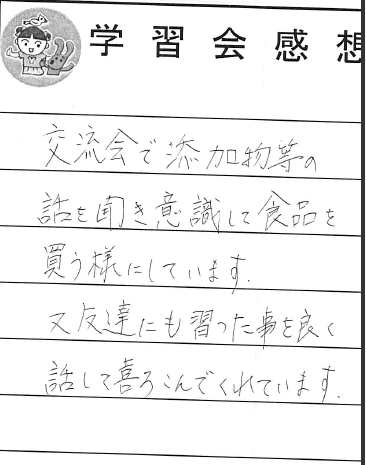 学習会感想
交流会で添加物等の
話を聞き意識して食品を
買う様にしています.
又友達にも習った事を良く
話して喜ろこんでくれています.